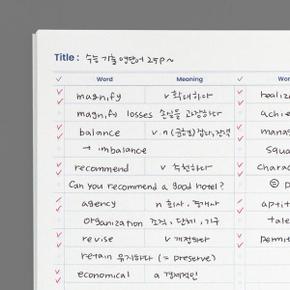 Title : 수능 기출 영단어 25P~
Word Meaning Wor
magnify v 확대하다
magnify losses 손실을 과장하다
balance v.n (균형)잡다,잔액
→ imbalance
recommend v 추천하다
Can you recommend a good hotel?
agency n 회사, 중개사
organization 조직, 단체, 기구
revise v 개정하다
retain 유지하다 (= preserve)
economical a 경제적인
achie
manag
squa
charac
apti
tale
permi